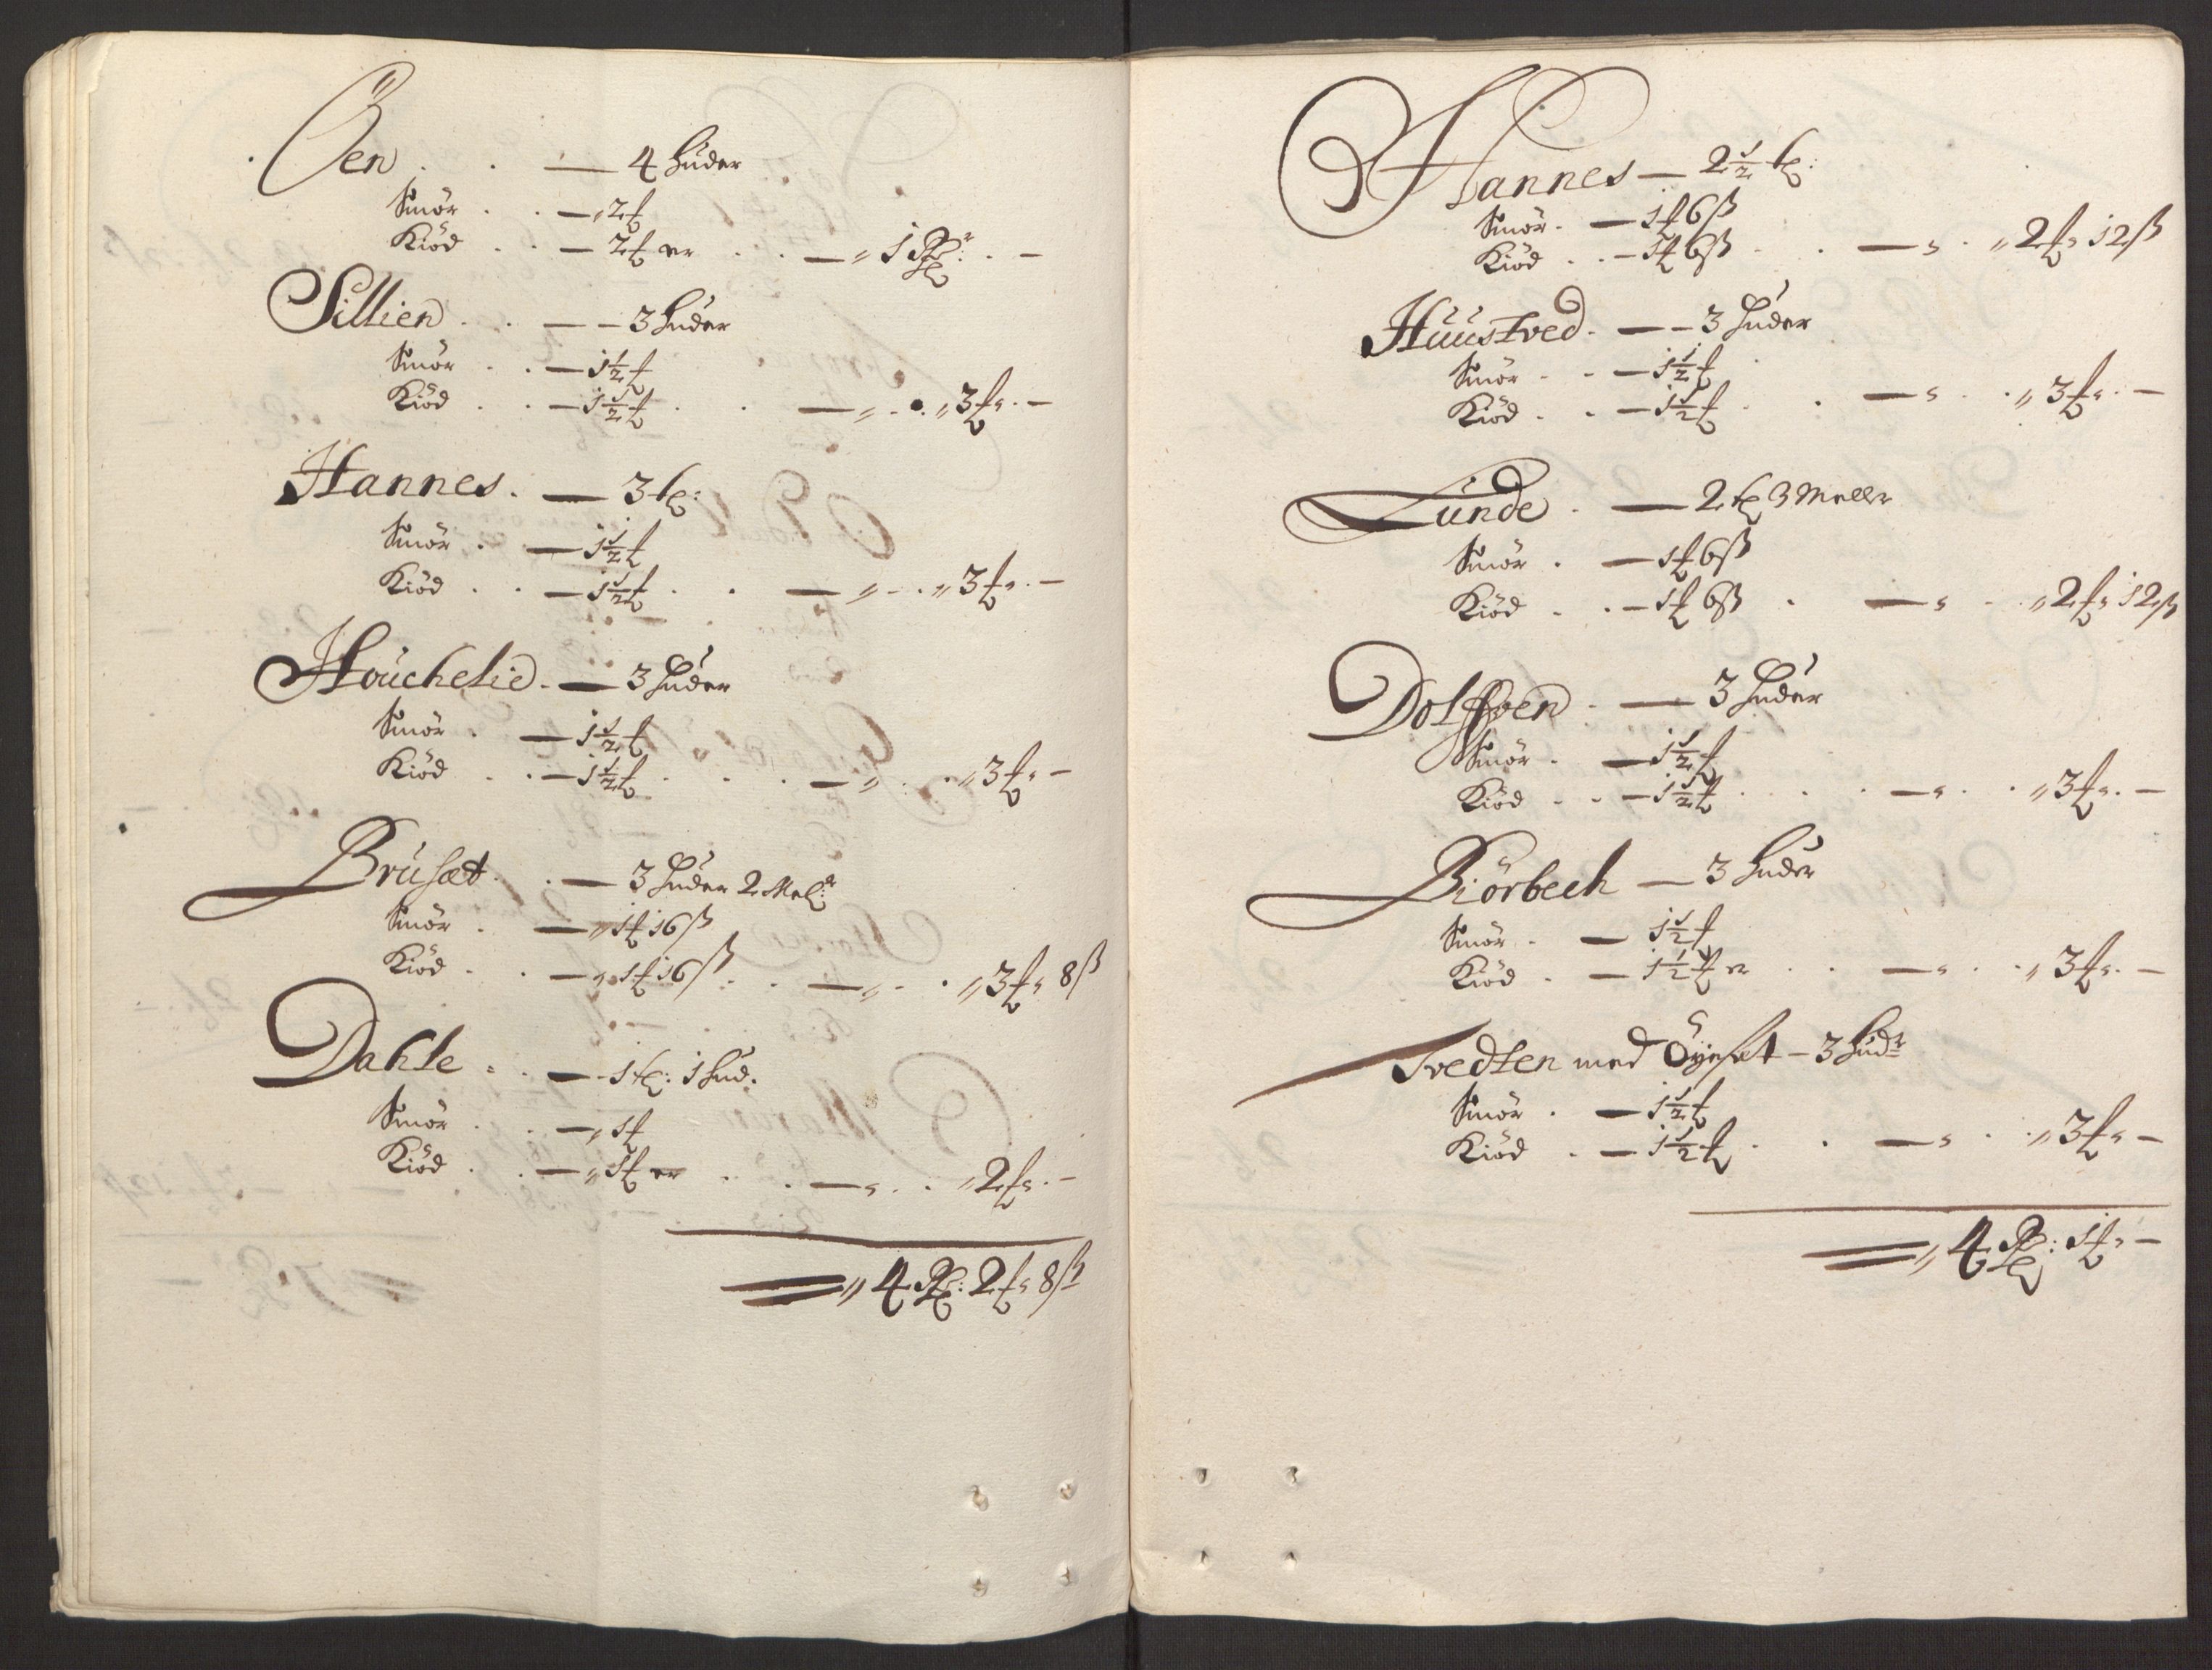 Öen . . — 4 huder
Smör . . — 2 ℔
Kiöd . . — 2 ℔ er . . — „ 1 Rdr: . —
Sillien . . — — 3 huder
Smör . . — 1½ ℔
Kiöd . . — 1½ ℔ . . — „ . . „ 3 ℔ „ . —
Hannes . — 3 tl:
Smör . — 1½ ℔
Kiöd . . — 1½ ℔ . . — „ - . „ 3 ℔ „ . —
Houchelie . — 3 huder
Smör . — 1½ ℔
Kiöd . . — 1½ ℔ . . . — „ . . „ 3 ℔ „ —
Brusæt . . — 3 huder 2 Melr
Smör . — „ 1 ℔ 16 ß
Kiöd . . — „ 1 ℔ 16 ß . . — „ - . „ 3 ℔ „ 8 ß
Dahle . . — 1 tl: 1 hud.
Smör . . — „ 1 ℔
Kiöd . . — „ 1 ℔ er . . — „ . . „ 2 ℔ „ . —
„ 4 Rd: 2 ℔ „ 8 ß
Hannes — 2½ tl:
Smör . — 1 ℔ 6 ß
Kiöd . . — 1 ℔ 6 ß . . — „ . „ 2 ℔ „ 12 ß
Huustved . — — 3 huder
Smör . . — 1½ ℔
Kiöd . . — 1½ ℔ . . — „ . . „ 3 ℔ „ . —
Lunde . — 2 tl 3 Meller
Smör . — 1 ℔ 6 ß
Kiöd . . — 1 ℔ 6 ß . — „ . . „ 2 ℔ „ 12 ß
Dolfven . — 3 huder
Smör . — 1½ ℔
Kiöd . . — 1½ ℔ . . . — „ . . „ 3 ℔ „ . —
Biörbech — 3 huder
Smör . — 1½ ℔
Kiöd . — 1½ ℔ er . . — „ . . „ 3 ℔ „ . —
Tvedten med Öysæt — 3 hudr
Smör . — 1½ ℔
Kiöd . — 1½ ℔ . . — „ . . „ 3 ℔ „ —
„ 4 Rd: 1 ℔ „ —